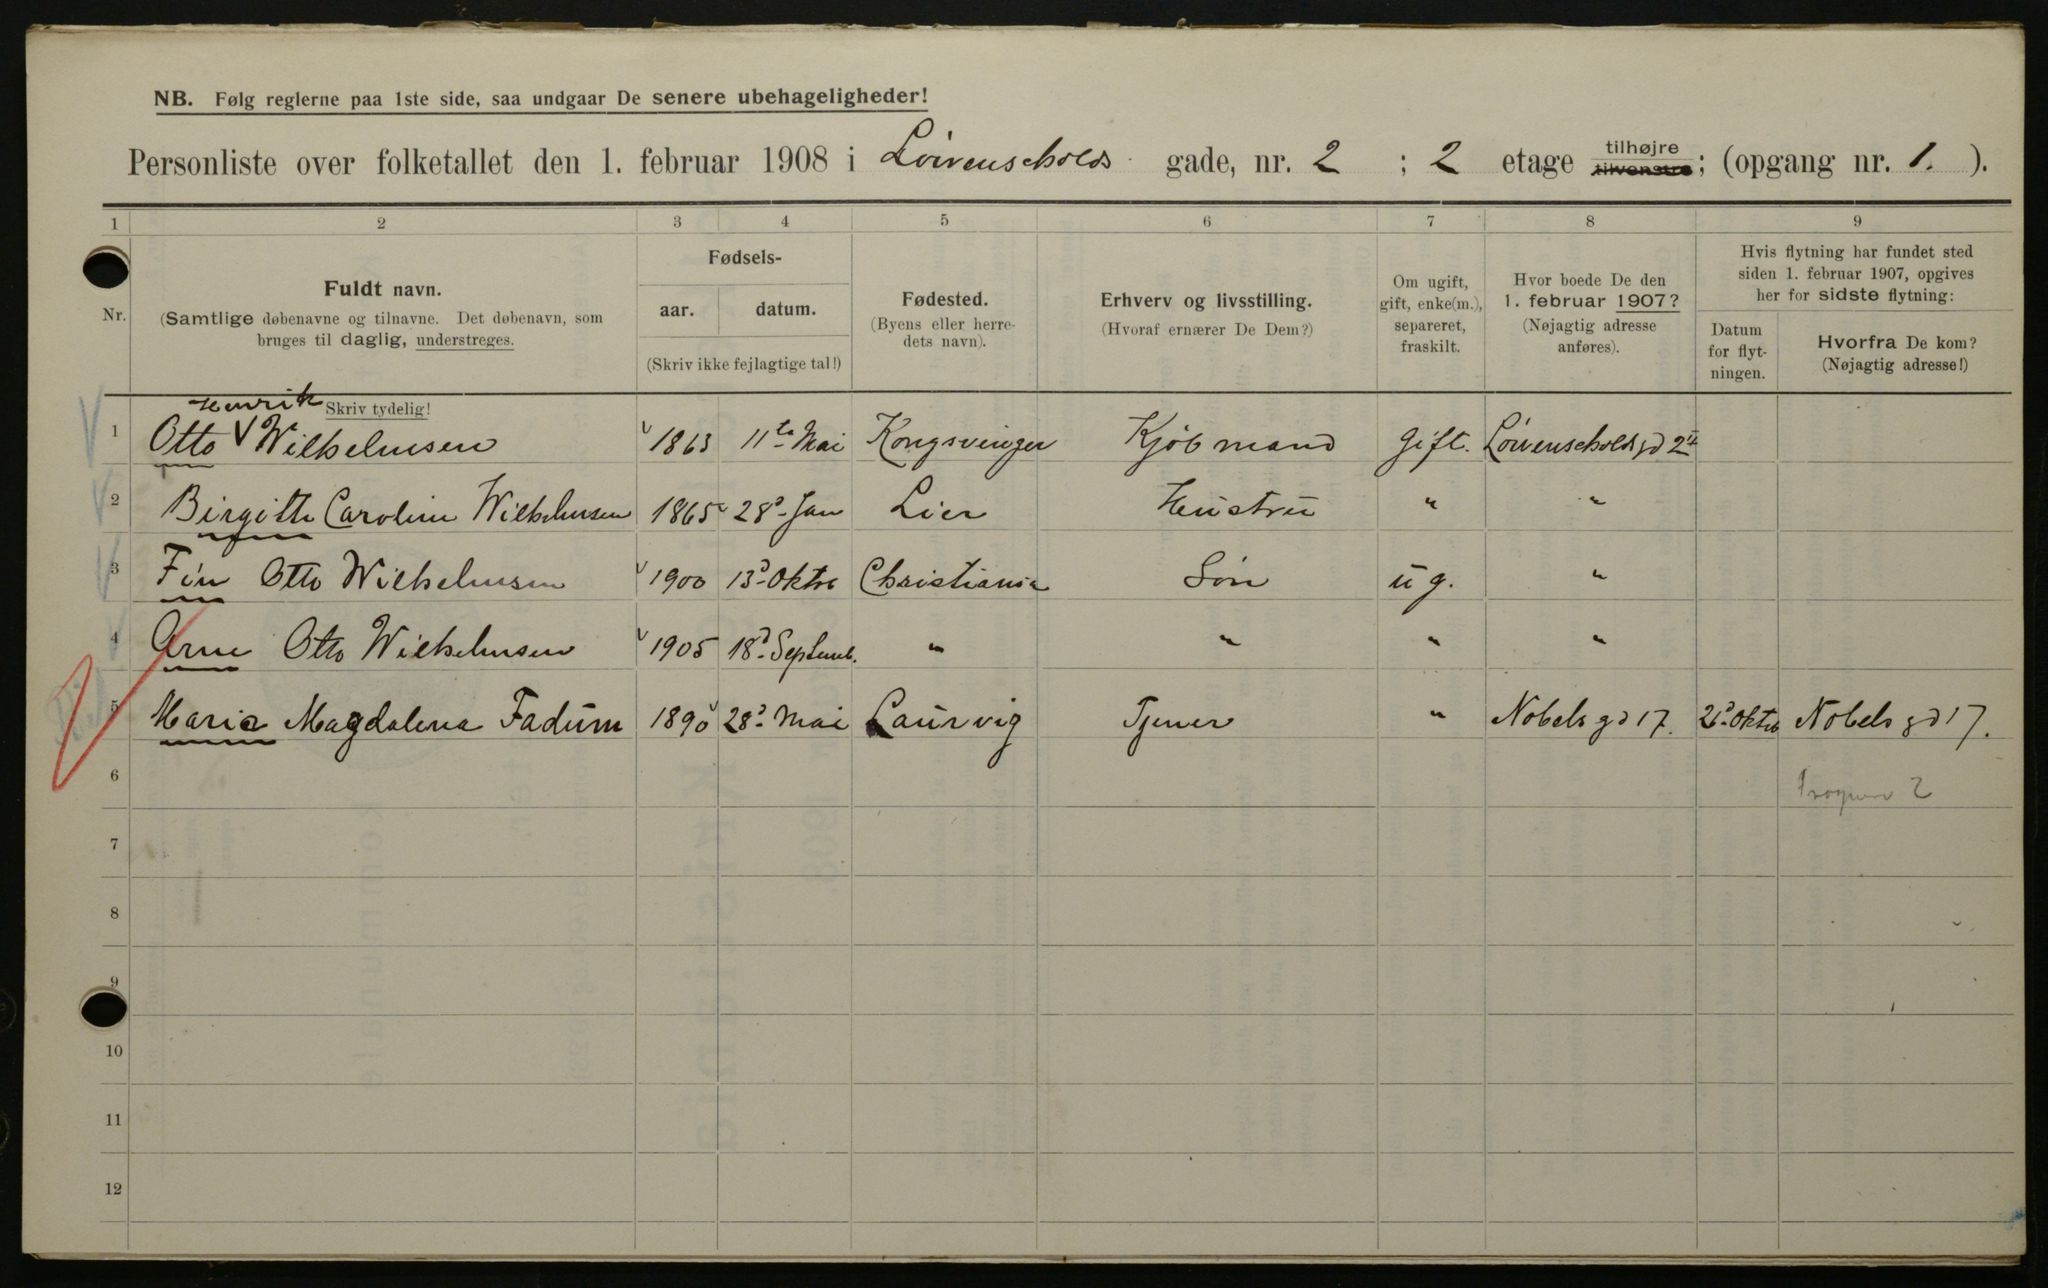 NB. Følg reglerne paa 1ste side, saa undgaar De senere ubehageligheder!
Personliste over folketallet den 1. februar 1908 i Løvenscholds gade, nr. 2 ; 2 etage tilhøjre tilvenstre; (opgang nr. 1. ).
1 2 3 4 5 6 7 8 9
Nr.
Fuldt navn.
(Samtlige døbenavne og tilnavne. Det døbenavn, som
bruges til daglig, understreges.
Skriv tydelig!
Fødsels-
aar. datum.
(Skriv ikke fejlagtige tal!)
Fødested.
(Byens eller herre-
dets navn).
Erhverv og livsstilling.
(Hvoraf ernærer De Dem?)
Om ugift,
gift, enke(m.),
separeret,
fraskilt.
Hvor boede De den
1. februar 1907?
(Nøjagtig adresse
anføres).
Hvis flytning har fundet sted
siden 1. februar 1907, opgives
her for sidste flytning:
Datum
for flyt-
ningen.
Hvorfra De kom?
(Nøjagtig adresse!)
Henrik
1 Otto V Wilhelmsen 1863 11te Mai Kongsvinger Kjøbmand gift. Løvenscholdsgd 2II
2 Birgitte Caroline Wilhelmsen 1865 28d Jan Lier Hustru " "
3 Fin Otto Wilhelmsen 1900 13d Oktre Christiania Søn ug. "
4 Arne Otto Wilhelmsen 1905 18d Septemb. " " " "
5 Maria Magdalena Fadum 1890 28d Mai Laurvig Tjener " Nobels gd 17. Oktob Nobels gd 17.
6
7
8
9
10
11
12